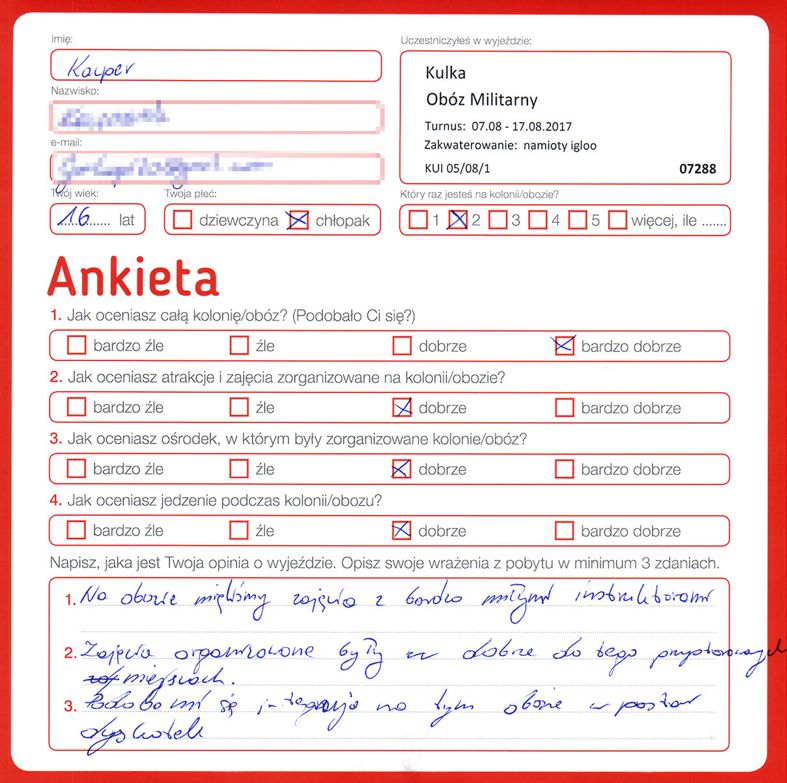 Imię:
Kacper
Uczestniczyłeś w wyjeździe:
Kulka
Obóz Militarny
Turnus: 07.08 - 17.08.2017
Zakwaterowanie: namioty igloo
KUI 05/08/1 07288
Nazwisko:
e-mail:
Twój wiek:
16 lat
Twoja płeć:
dziewczyna chłopak
Który raz jesteś na kolonii/obozie?
1 2 3 4 5 więcej, ile .......
Ankieta
1. Jak oceniasz całą kolonię/obóz? (Podobało Ci się?)
bardzo źle źle dobrze bardzo dobrze
2. Jak oceniasz atrakcje i zajęcia zorganizowane na kolonii/obozie?
bardzo źle źle dobrze bardzo dobrze
3. Jak oceniasz ośrodek, w którym były zorganizowane kolonie/obóz?
bardzo źle źle dobrze bardzo dobrze
4. Jak oceniasz jedzenie podczas kolonii/obozu?
bardzo źle źle dobrze bardzo dobrze
Napisz, jaka jest Twoja opinia o wyjeździe. Opisz swoje wrażenia z pobytu w minimum 3 zdaniach.
1. Na obozie mieliśmy zajęcia z bardzo miłymi instruktorami
2. Zajęcia organizowane były w dobrze do tego przystosowanych
miejscach.
3. Podoba mi się integracja na tym obozie w postaci
dyskotek